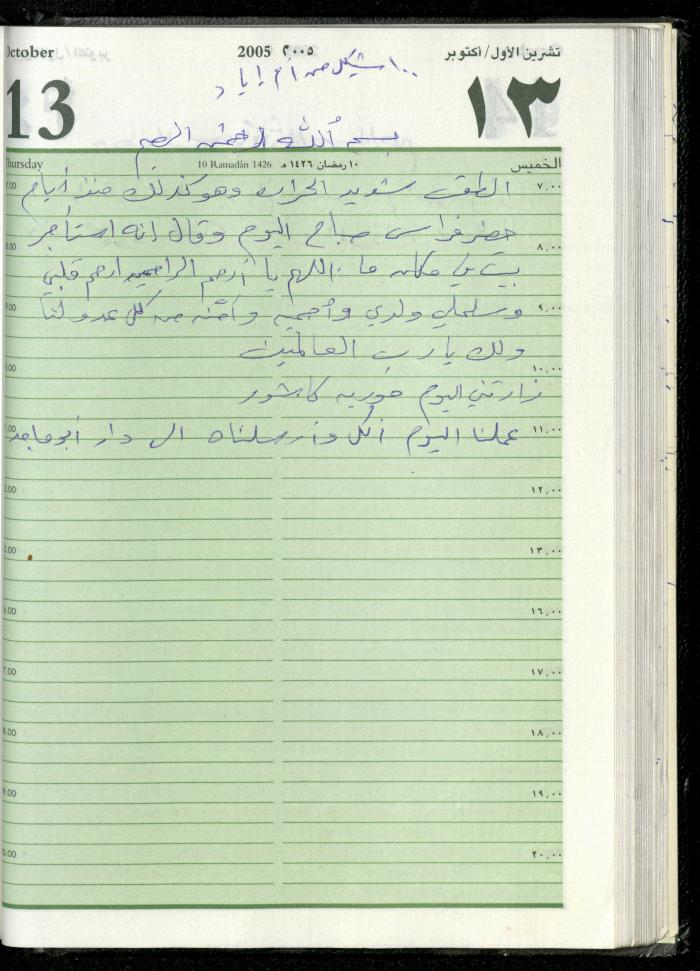 October 2005 ٢٠٠٥ تشرين الأول/أكتوبر
١٠٠ شيكل من أم إياد
13 ١٣
بسم الله الرحمن الرحيم
Thursday 10 Ramadân 1426 ١٠ رمضان ١٤٢٦ هـ الخميس
٧,٠٠ الطقس شديد الحرارة وهو كذلك منذ أيام
حضر فراس صباح اليوم وقال إنه استأجر
٨,٠٠
بيت في مكان ما اللهم يا أرحم الراحمين ارحم قلبي
٩,٠٠ وسلملي ولدي وأحميه وأمنه من كل عدو لنا
ولك يا رب العالمين
١٠,٠٠
زارتني اليوم حورية عاشور
١١,٠٠ عملنا اليوم أكل وأرسلناه الى دار أبو ماجد
١٢,٠٠
١٣,٠٠
١٦,٠٠
١٧,٠٠
١٨,٠٠
١٩,٠٠
٢٠,٠٠